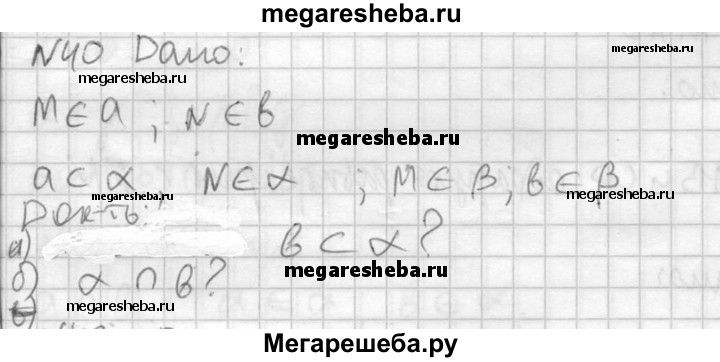 megaresheba.ru
N40 Дано:
megaresheba.ru
megaresheba.ru
M∈a; N∈b
megaresheba.ru
a⊂α, N∈α; M∈β; b∈β
megaresheba.ru
megaresheba.ru
Док-ть:
а) b⊂α?
megaresheba.ru
б) α∩b?
megaresheba.ru
в)
Мегарешеба.ру